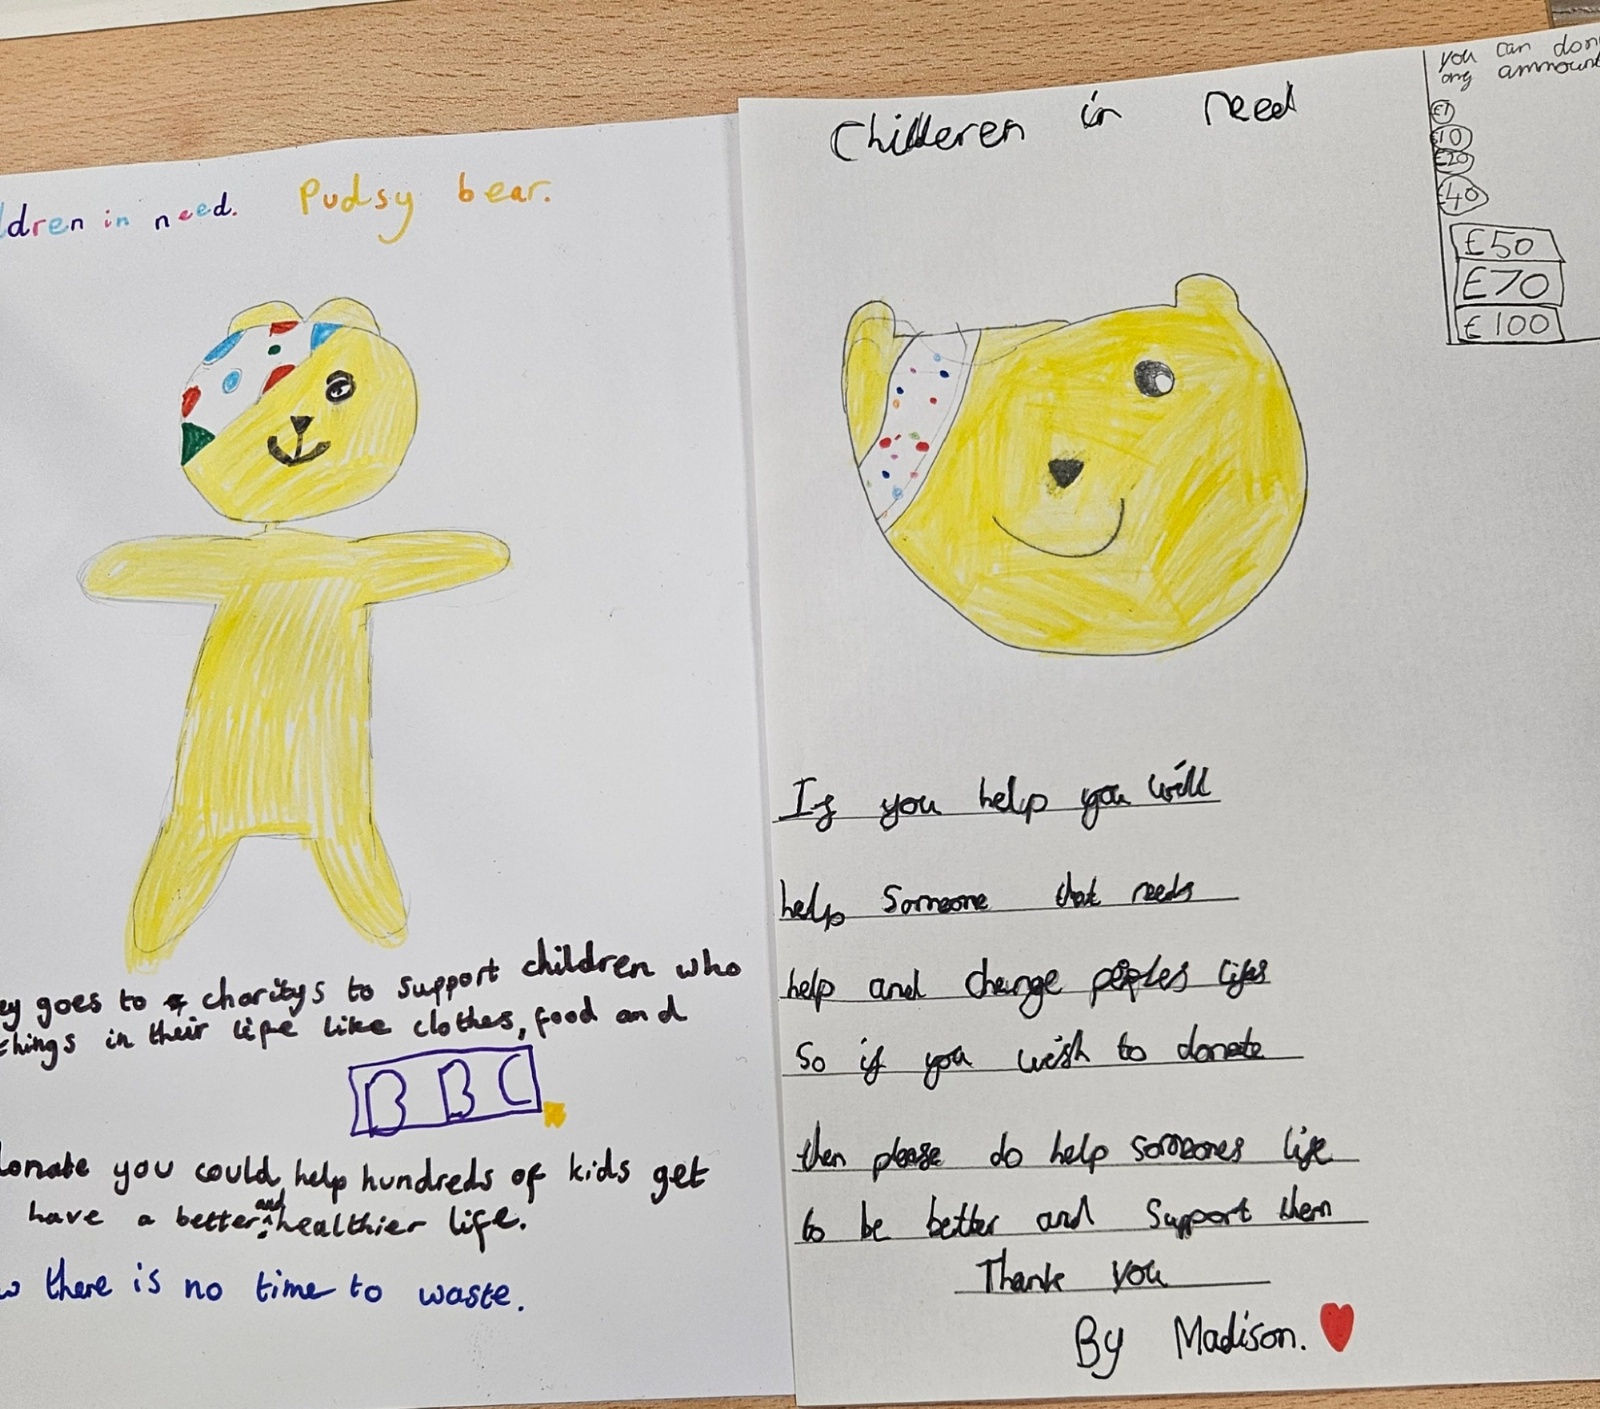 dren in need. Pudsy bear.
ey goes to charitys to support children who
things in their life like clothes, food and
BBC
donate you could help hundreds of kids get
have a better and healthier life.
w there is no time to waste.
Childeren in need
If you help you will
help Someone that needs
help and change peoples lifes
So if you wish to donate
then please do help someones life
to be better and Support them
Thank you
By Madison.
you can don
any ammount
£1
£10
£20
£40
£50
£70
£100